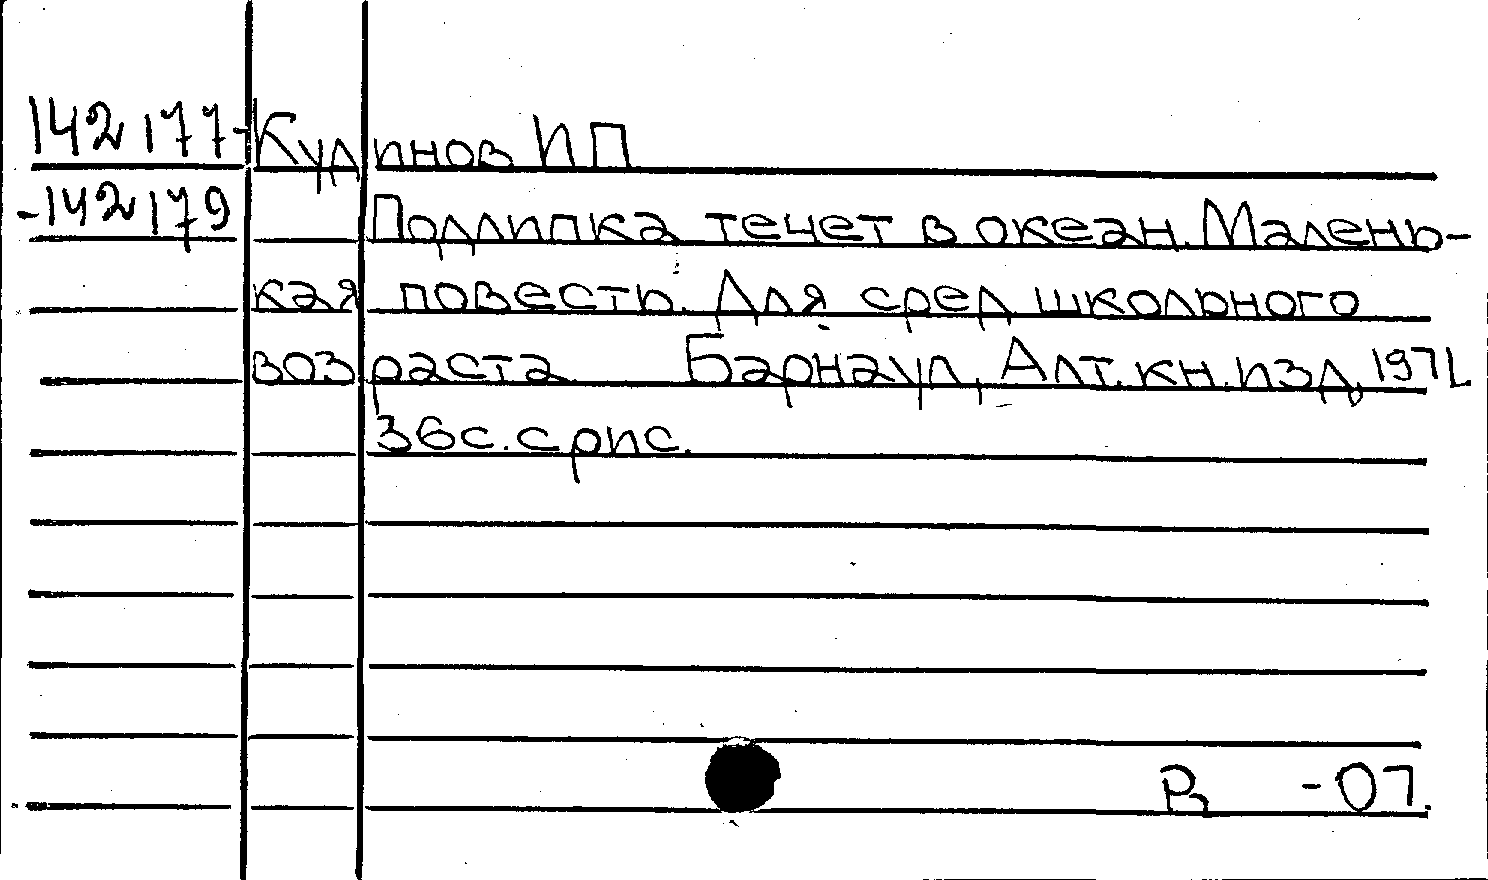 142177- Кудинов И П
-142179 Подлипка течет в океан. Малень-
кая повесть. Для сред школьного
возраста Барнаул, Алт. кн. изд, 1971.
36с. с рис.
В -07.